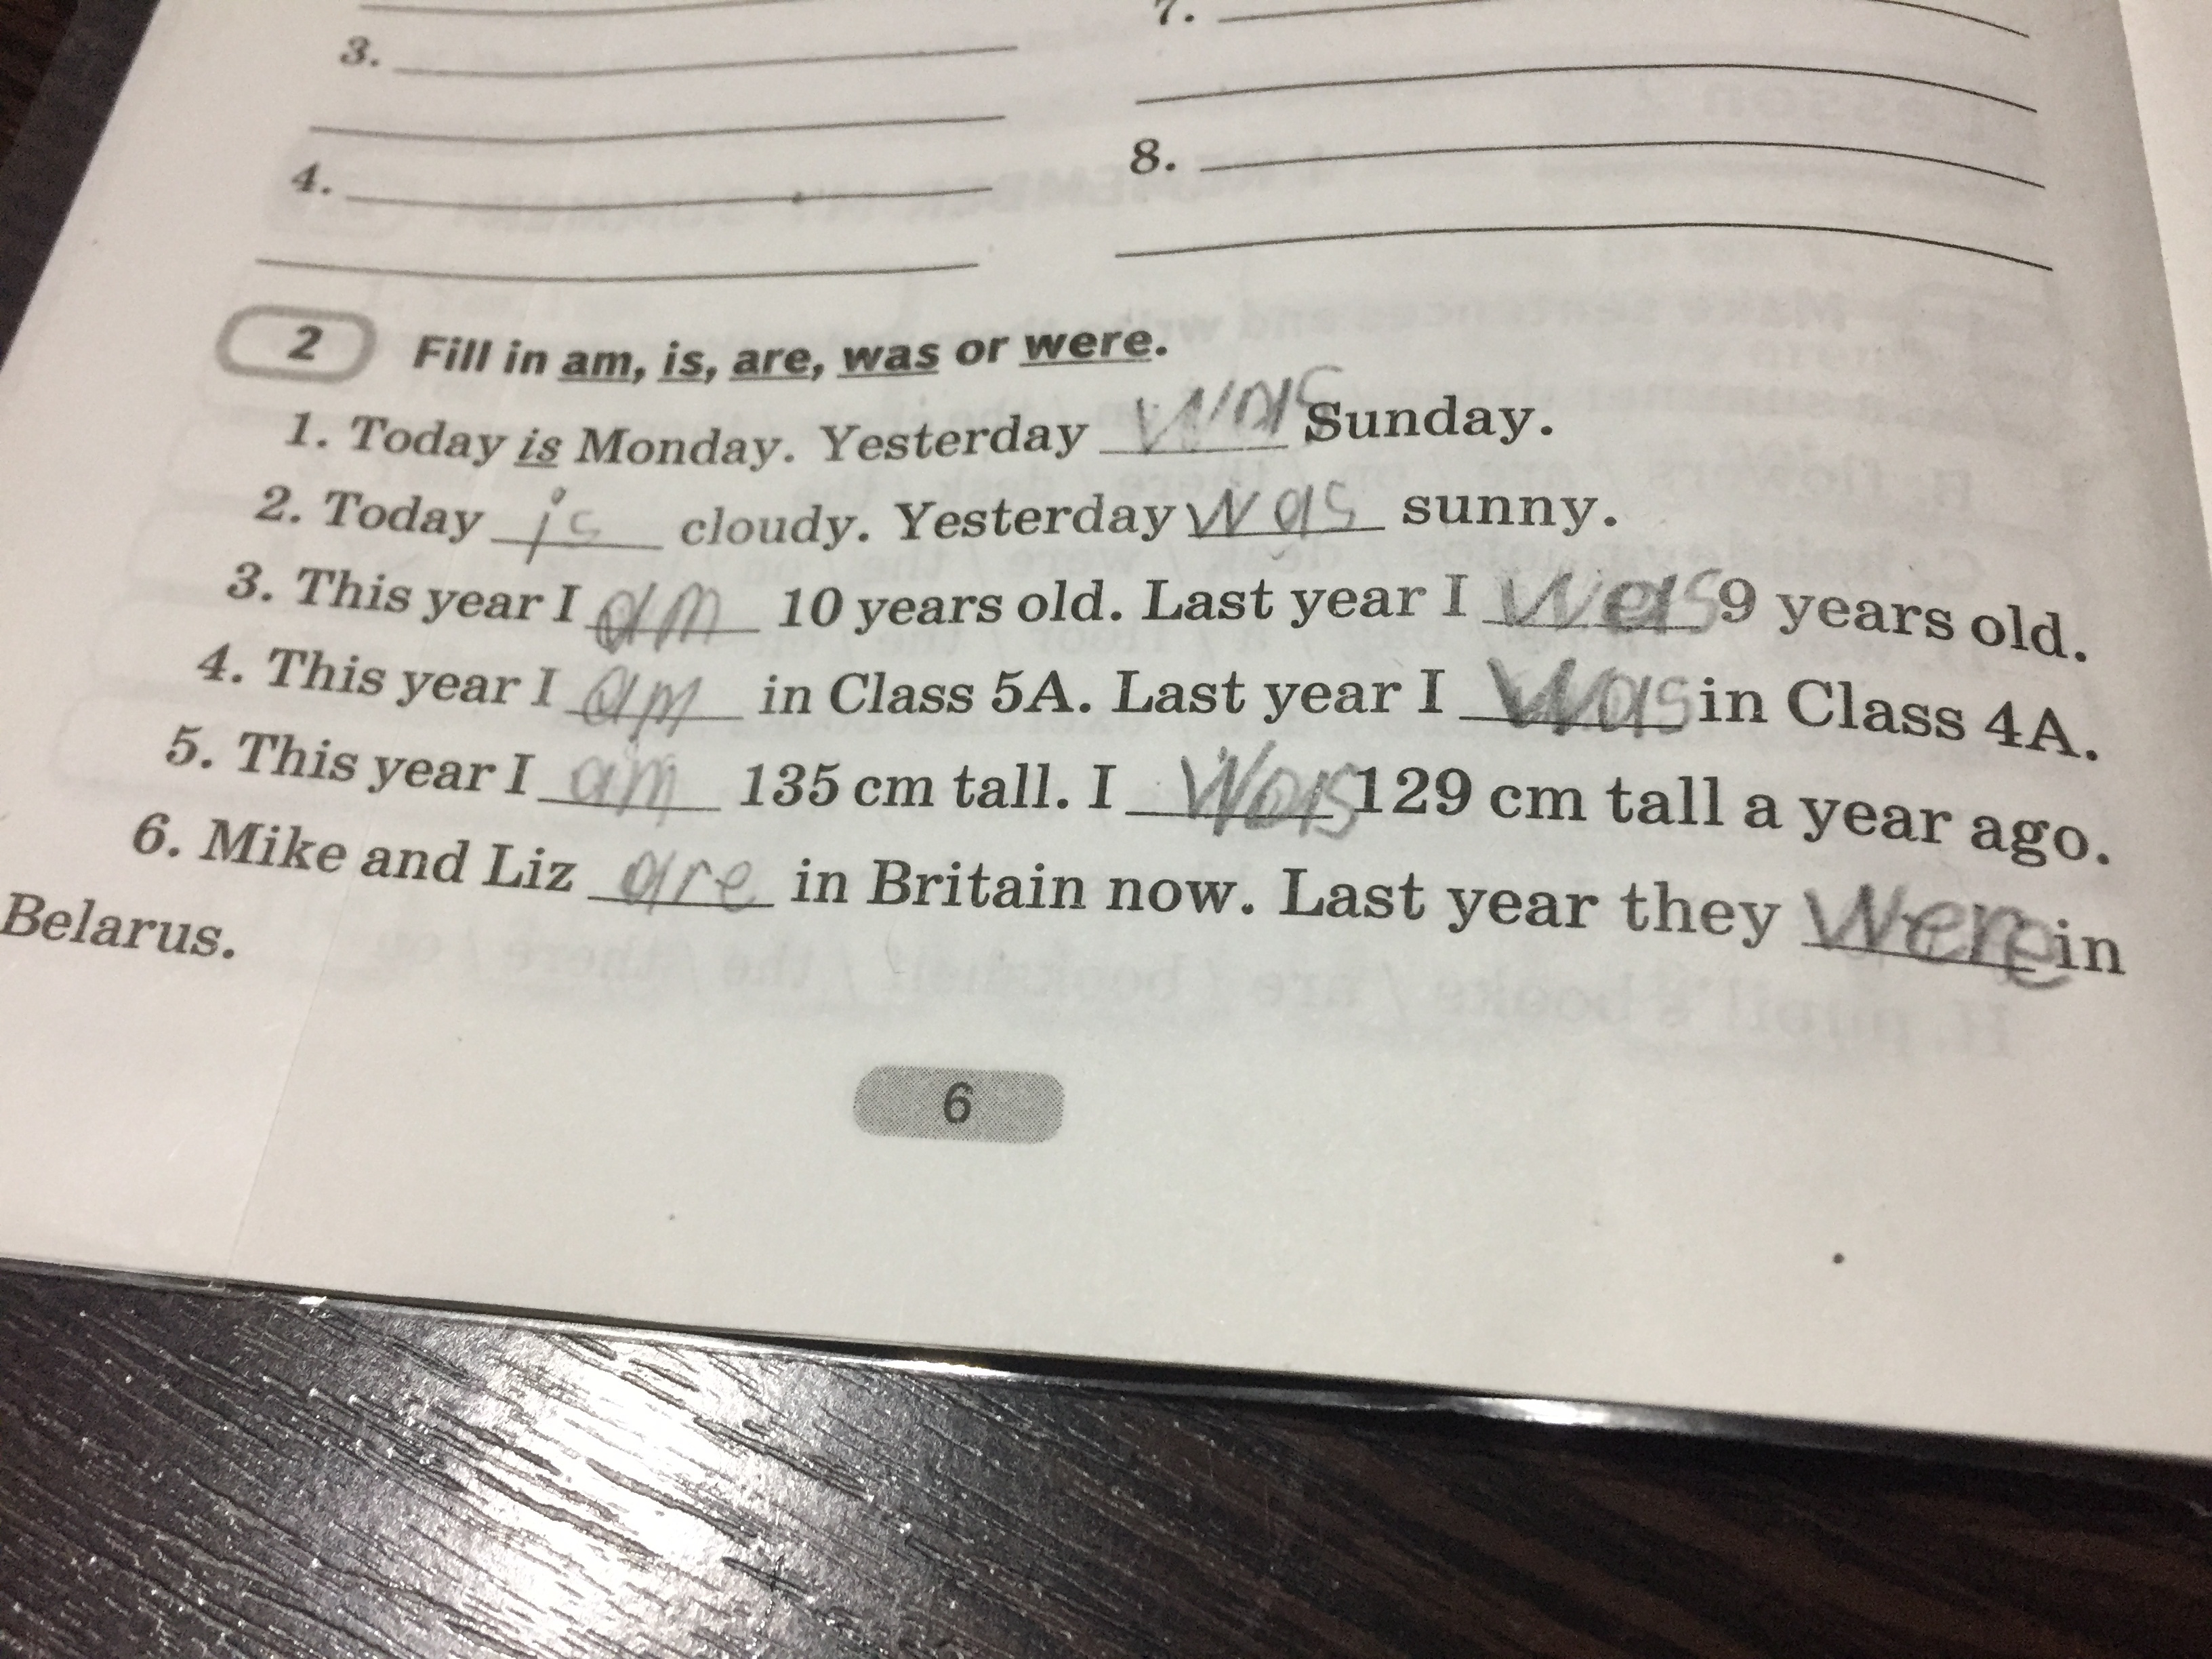 7.
3.
8.
4.
2 Fill in am, is, are, was or were.
1. Today is Monday. Yesterday was Sunday.
2. Today is cloudy. Yesterday was sunny.
3. This year I am 10 years old. Last year I was 9 years old.
4. This year I am in Class 5A. Last year I was in Class 4A.
5. This year I am 135 cm tall. I was 129 cm tall a year ago.
6. Mike and Liz are in Britain now. Last year they were in
Belarus.
6